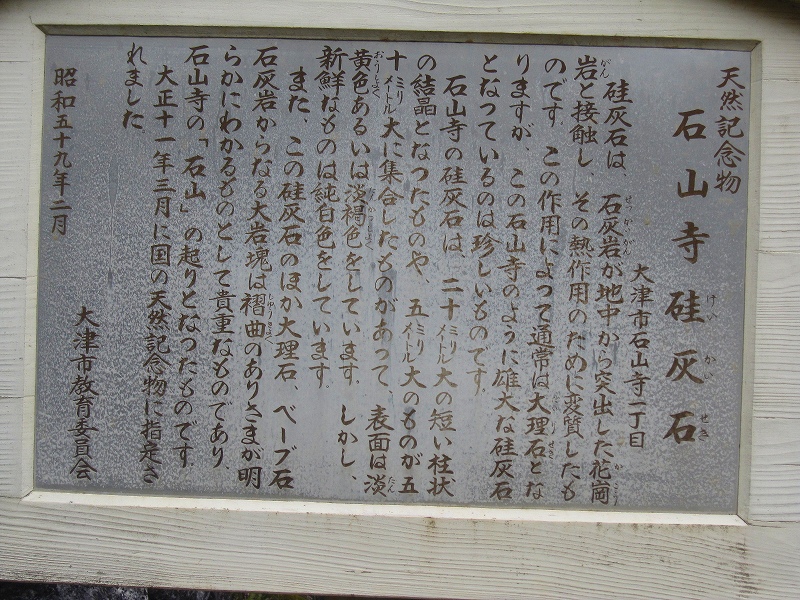 天然記念物
石山寺硅灰石
大津市石山寺一丁目
硅灰石は、石灰岩が地中から突出した花崗
岩と接触し、その熱作用のために変質したも
のです。この作用によって通常は大理石とな
りますが、この石山寺のように雄大な硅灰石
となっているのは珍しいものです。
石山寺の硅灰石は、二十ミリメートル大の短い柱状
の結晶となったものや、五ミリメートル大のものが五
十ミリメートル大に集合したものがあって、表面は淡
黄色あるいは淡褐色をしています。しかし、
新鮮なものは純白色をしています。
また、この硅灰石のほか大理石、ベーブ石
石灰岩からなる大岩塊は褶曲のありさまが明
らかにわかるものとして貴重なものであり、
石山寺の「石山」の起りとなったものです。
大正十一年三月に国の天然記念物に指定さ
れました。
昭和五十九年二月
大津市教育委員会